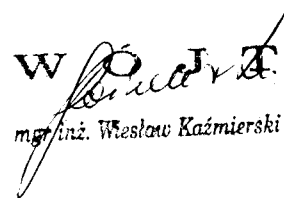 WÓJT
mgr inż. Wiesław Kaźmierski